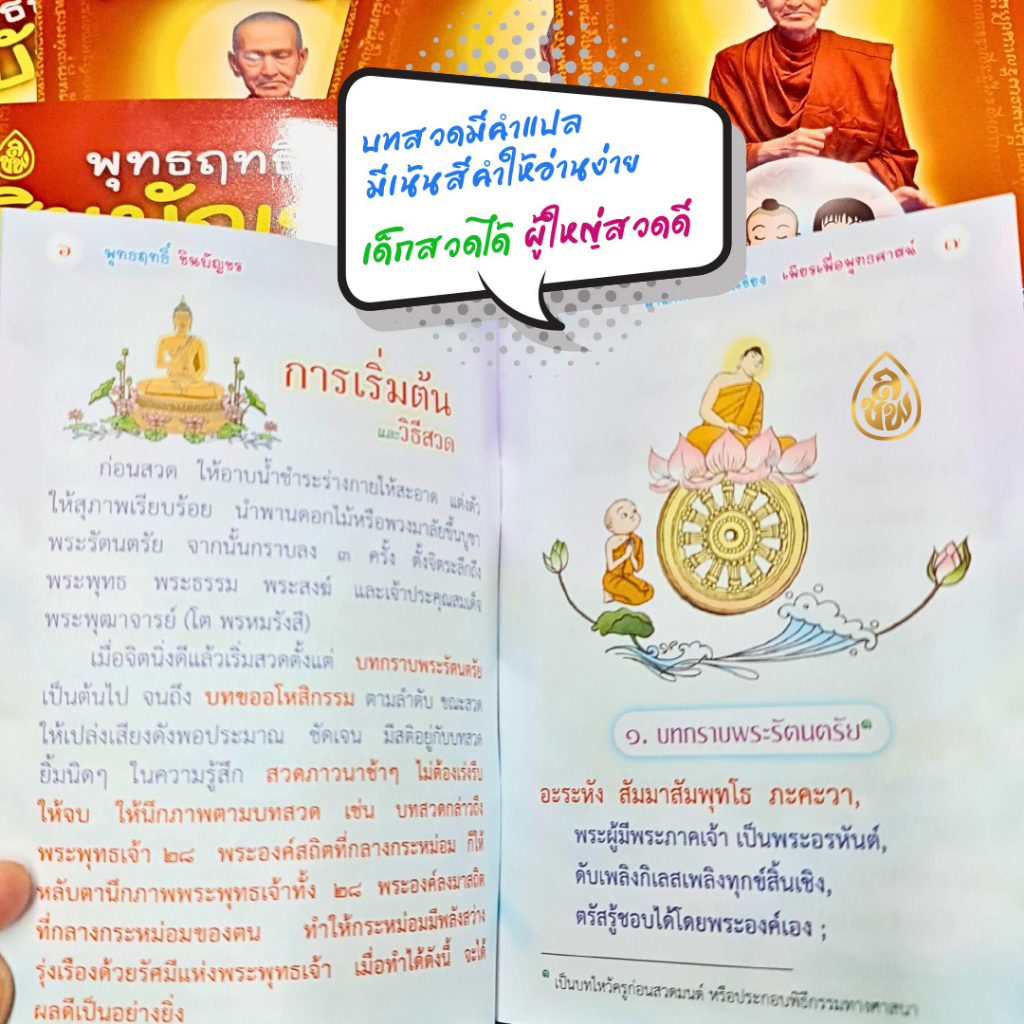 บทสวดมีคำแปล
มีเน้นสีคำให้อ่านง่าย
เด็กสวดได้ ผู้ใหญ่สวดดี
พุทธฤทธิ์
๖ พุทธฤทธิ์ ชินบัญชร
การเริ่มต้น
และวิธีสวด
ก่อนสวด ให้อาบน้ำชำระร่างกายให้สะอาด แต่งตัว
ให้สุภาพเรียบร้อย นำพานดอกไม้หรือพวงมาลัยขึ้นบูชา
พระรัตนตรัย จากนั้นกราบลง ๓ ครั้ง ตั้งจิตระลึกถึง
พระพุทธ พระธรรม พระสงฆ์ และเจ้าประคุณสมเด็จ
พระพุฒาจารย์ (โต พรหมรังสี)
เมื่อจิตนิ่งดีแล้วเริ่มสวดตั้งแต่ บทกราบพระรัตนตรัย
เป็นต้นไป จนถึง บทขออโหสิกรรม ตามลำดับ ขณะสวด
ให้เปล่งเสียงดังพอประมาณ ชัดเจน มีสติอยู่กับบทสวด
ยิ้มนิดๆ ในความรู้สึก สวดภาวนาช้าๆ ไม่ต้องเร่งรีบ
ให้จบ ให้นึกภาพตามบทสวด เช่น บทสวดกล่าวถึง
พระพุทธเจ้า ๒๘ พระองค์สถิตที่กลางกระหม่อม ก็ให้
หลับตานึกภาพพระพุทธเจ้าทั้ง ๒๘ พระองค์ลงมาสถิต
ที่กลางกระหม่อมของตน ทำให้กระหม่อมมีพลังสว่าง
รุ่งเรืองด้วยรัศมีแห่งพระพุทธเจ้า เมื่อทำได้ดังนี้ จะได้
ผลดีเป็นอย่างยิ่ง
เพียรเพื่อพุทธศาสน์ ๗
๑. บทกราบพระรัตนตรัย๑
อะระหัง สัมมาสัมพุทโธ ภะคะวา,
พระผู้มีพระภาคเจ้า เป็นพระอรหันต์,
ดับเพลิงกิเลสเพลิงทุกข์สิ้นเชิง,
ตรัสรู้ชอบได้โดยพระองค์เอง ;
๑ เป็นบทไหว้ครูก่อนสวดมนต์ หรือประกอบพิธีกรรมทางศาสนา